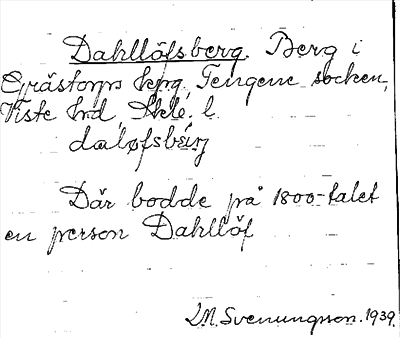 Dahllöfsberg. Berg i
Grästorps kpg, Tengene socken,
Viste hrd, Skbg. l.
daløfsbærj
Där bodde på 1800-talet
en person Dahllöf
L.M. Svenungsson. 1939.